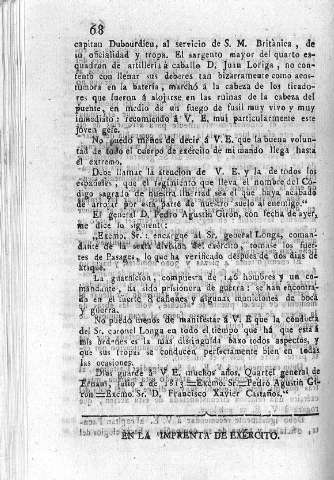 68
capitan Dubourdieu, al servicio de S. M. Británica, de
su oficialidad y tropa. El sargento mayor del quarto es-
quadron de artillería á caballo D. Juan Loriga, no con-
tento con llenar sus deberes tan bizarramente como acos-
tumbra en la batería, marchó á la cabeza de los tirado-
res que fueron á alojarse en las ruinas de la cabeza del
puente, en medio de un fuego de fusil muy vivo y muy
inmediato: recomiendo á V. E. mui particularmente este
jóven gefe.
No puedo menos de decir á V. E. que la buena volun-
tad de todo el cuerpo de exército de mi mando llega hasta
el extremo.
Debe llamar la atencion de V. E. y la de todos los
españoles, que el regimiento que lleva el nombre del Có-
digo sagrado de nuestra libertad sea el que haya acabado
de arrojar por esta parte de nuestro suelo al enemigo."
El general D. Pedro Agustin Giron, con fecha de ayer,
me dice lo siguiente:
"Excmo. Sr.: encargué al Sr. general Longa, coman-
dante de la sexta division del exército, tomase los fuer-
tes de Pasages, lo que ha verificado después de dos dias de
ataque.
La guarnicion, compuesta de 146 hombres y un co-
mandante, ha sido prisionera de guerra: se han encontra-
do en el fuerte 8 cañones y algunas municiones de boca
y guerra.
No puedo menos de manifestar á V. E. que la conducta
del Sr. coronel Longa en todo el tiempo que há que está á
mis órdenes es la mas distinguida baxo todos aspectos, y
que sus tropas se conducen perfectamente bien en todas
las ocasiones.
Dios guarde á V. E. muchos años. Quartel general de
Ernani, julio 2 de 1813.=Excmo. Sr.=Pedro Agustin Gi-
ron.=Excmo. Sr. D. Francisco Xavier Castaños."
EN LA IMPRENTA DE EXÉRCITO.